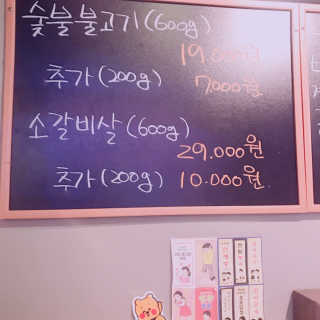 숯불 불고기 (600g)
19.000원
추가 (200g) 7.000원
소갈비살 (600g)
29.000원
추가 (200g) 10.000원